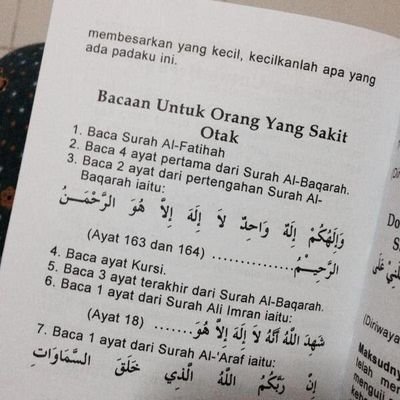 membesarkan yang kecil, kecilkanlah apa yang
ada padaku ini.
Bacaan Untuk Orang Yang Sakit
Otak
1. Baca Surah Al-Fatihah
2. Baca 4 ayat pertama dari Surah Al-Baqarah.
3. Baca 2 ayat dari pertengahan Surah Al-
Baqarah iaitu:
وَإِلَهُكُمْ إِلَهٌ وَاحِدٌ لاَ إِلَهَ إِلاَّ هُوَ الرَّحْمَنُ
الرَّحِيمُ................ (Ayat 163 dan 164)
4. Baca ayat Kursi.
5. Baca 3 ayat terakhir dari Surah Al-Baqarah.
6. Baca 1 ayat dari Surah Ali Imran iaitu:
شَهِدَ اللَّهُ أَنَّهُ لاَ إِلَهَ إِلاَّ هُوَ....... (Ayat 18)
7. Baca 1 ayat dari Surah Al-'Araf iaitu:
إِنَّ رَبَّكُمُ اللَّهُ الَّذِي خَلَقَ السَّمَاوَاتِ
(Diriwaya
Maksudny